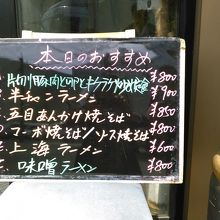 本日のおすすめ
片切り豚肉と卵とキクラゲ炒め定食 ¥800
半チャンラーメン ¥900
五目あんかけ焼そば ¥850
ゴーボ焼そば/ソース焼そば ¥800
上海ラーメン ¥600
味噌ラーメン ¥800